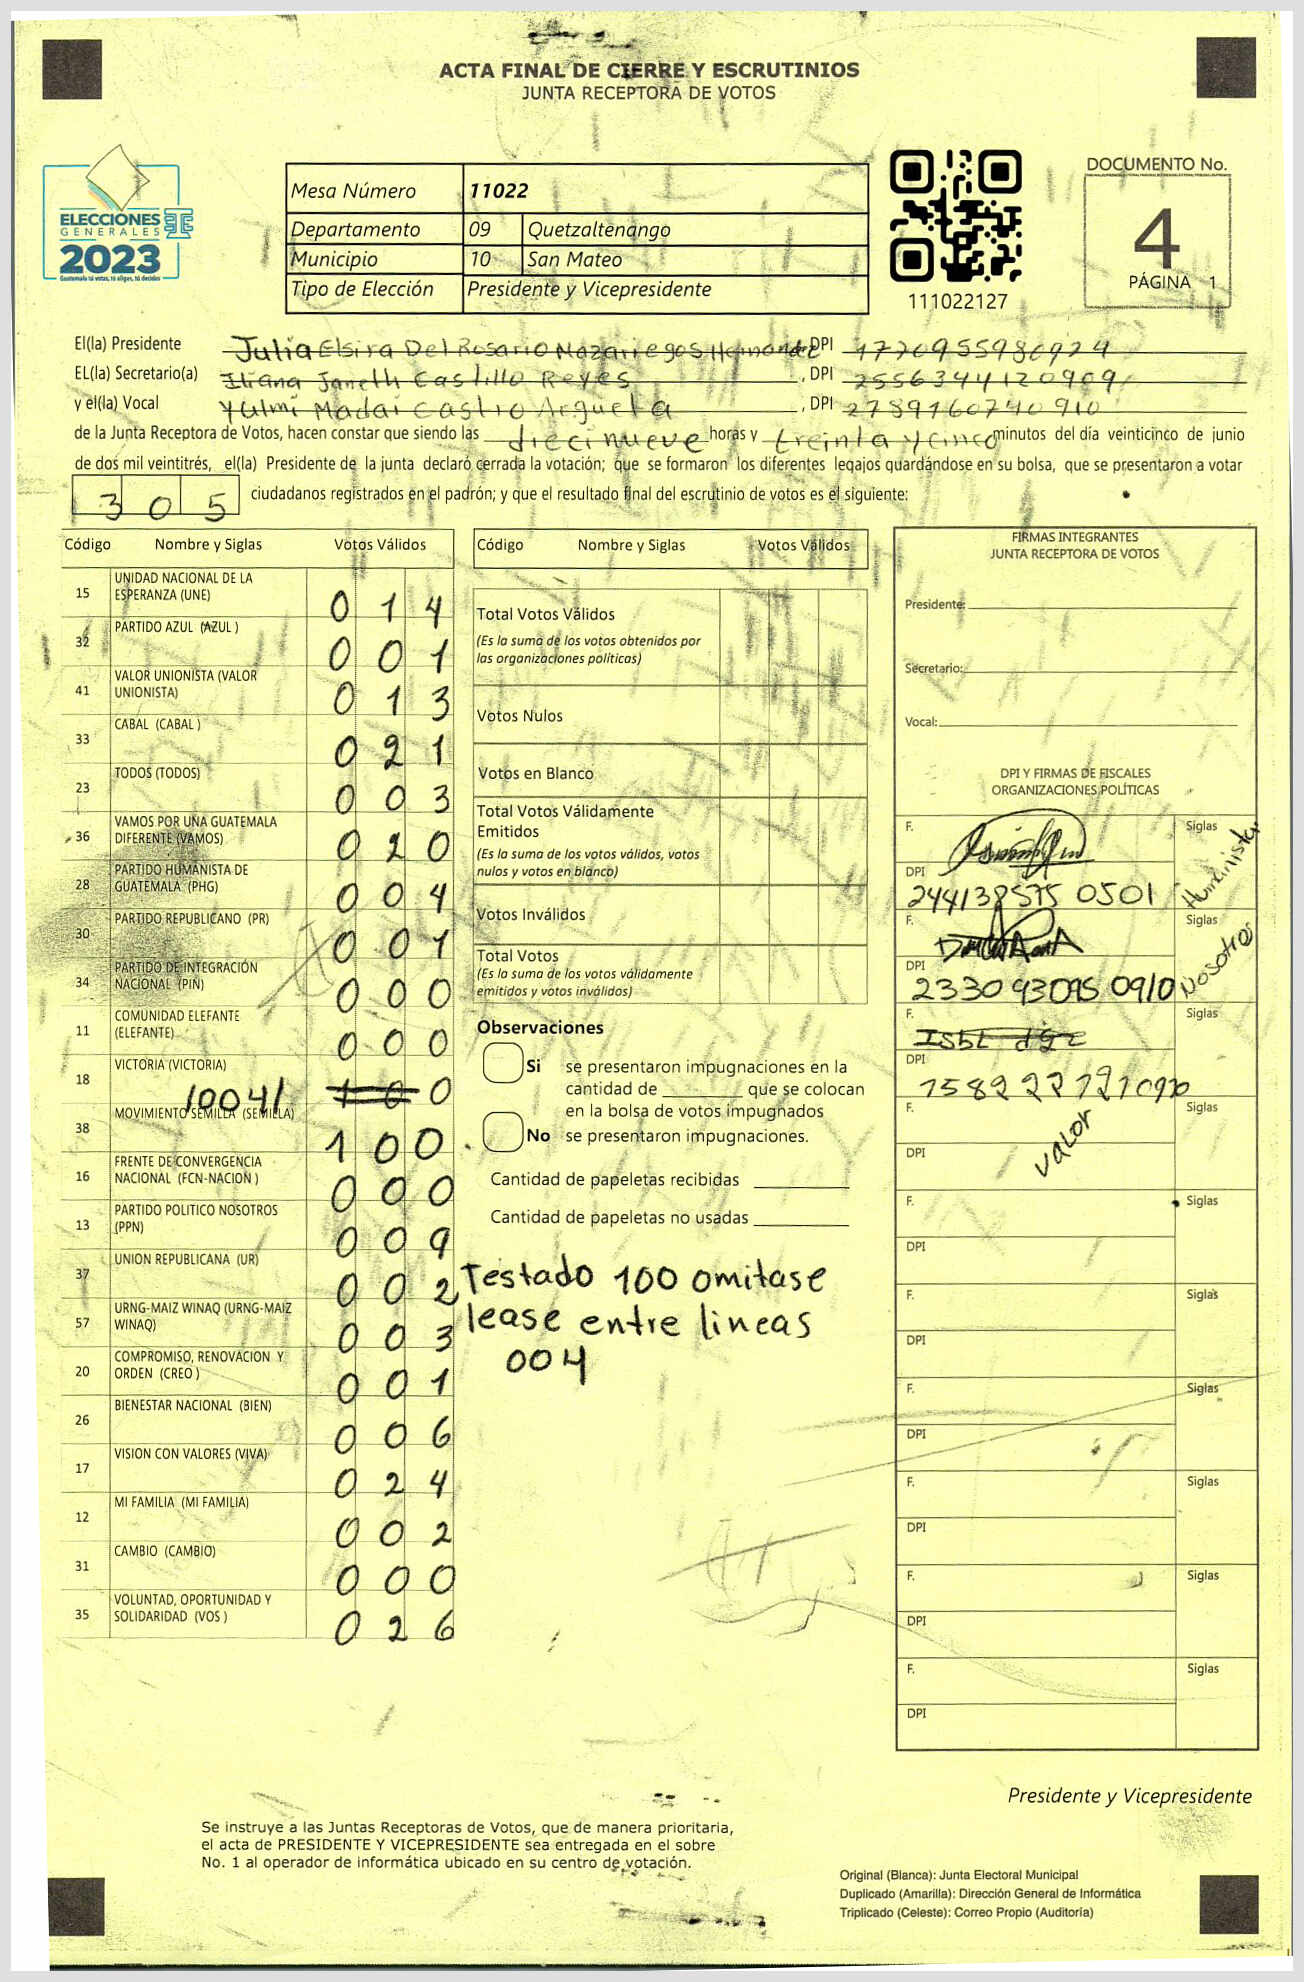 ACTA FINAL DE CIERRE Y ESCRUTINIOS
JUNTA RECEPTORA DE VOTOS
ELECCIONES
GENERALES
2023
Guatemala tú votas, tú eliges, tú decides
Mesa Número 11022
Departamento 09 Quetzaltenango
Municipio 10 San Mateo
Tipo de Elección Presidente y Vicepresidente
111022127
DOCUMENTO No.
4
PÁGINA 1
El(la) Presidente Julia Elsira Del Rosario Mazariegos Hernandez DPI 1770955980924
EL(la) Secretario(a) Iliana Janeth Castillo Reyes , DPI 2556344120909
y el(la) Vocal Yulmi Madai Castro Argueta , DPI 2789160740910
de la Junta Receptora de Votos, hacen constar que siendo las diecinueve horas y treinta y cinco minutos del día veinticinco de junio
de dos mil veintitrés, el(la) Presidente de la junta declaró cerrada la votación; que se formaron los diferentes legajos guardándose en su bolsa, que se presentaron a votar
305 ciudadanos registrados en el padrón; y que el resultado final del escrutinio de votos es el siguiente:
Código Nombre y Siglas Votos Válidos
15 UNIDAD NACIONAL DE LA ESPERANZA (UNE) 0 1 4
32 PARTIDO AZUL (AZUL ) 0 0 1
41 VALOR UNIONISTA (VALOR UNIONISTA) 0 1 3
33 CABAL (CABAL ) 0 2 1
23 TODOS (TODOS) 0 0 3
36 VAMOS POR UNA GUATEMALA DIFERENTE (VAMOS) 0 2 0
28 PARTIDO HUMANISTA DE GUATEMALA (PHG) 0 0 4
30 PARTIDO REPUBLICANO (PR) 0 0 1
34 PARTIDO DE INTEGRACIÓN NACIONAL (PIN) 0 0 0
11 COMUNIDAD ELEFANTE (ELEFANTE) 0 0 0
18 VICTORIA (VICTORIA) /004/ 1 0 0
38 MOVIMIENTO SEMILLA (SEMILLA) 1 0 0
16 FRENTE DE CONVERGENCIA NACIONAL (FCN-NACION ) 0 0 0
13 PARTIDO POLITICO NOSOTROS (PPN) 0 0 9
37 UNION REPUBLICANA (UR) 0 0 2
57 URNG-MAIZ WINAQ (URNG-MAIZ WINAQ) 0 0 3
20 COMPROMISO, RENOVACION Y ORDEN (CREO ) 0 0 1
26 BIENESTAR NACIONAL (BIEN) 0 0 6
17 VISION CON VALORES (VIVA) 0 2 4
12 MI FAMILIA (MI FAMILIA) 0 0 2
31 CAMBIO (CAMBIO) 0 0 0
35 VOLUNTAD, OPORTUNIDAD Y SOLIDARIDAD (VOS ) 0 2 6
Código Nombre y Siglas Votos Válidos
Total Votos Válidos
(Es la suma de los votos obtenidos por
las organizaciones políticas)
Votos Nulos
Votos en Blanco
Total Votos Válidamente
Emitidos
(Es la suma de los votos válidos, votos
nulos y votos en blanco)
Votos Inválidos
Total Votos
(Es la suma de los votos válidamente
emitidos y votos inválidos)
Observaciones
Si se presentaron impugnaciones en la
cantidad de ________ que se colocan
en la bolsa de votos impugnados
No se presentaron impugnaciones.
Cantidad de papeletas recibidas
Cantidad de papeletas no usadas
Testado 100 omitase
lease entre lineas
004
FIRMAS INTEGRANTES
JUNTA RECEPTORA DE VOTOS
Presidente:
Secretario:
Vocal:
DPI Y FIRMAS DE FISCALES
ORGANIZACIONES POLÍTICAS
F. Siglas Humanista
DPI 244138575 0501
F. Siglas Nosotros
DPI 2330 93095 0910
F. Siglas
DPI 1582 22121 0910
F. Siglas
valor
DPI
F. Siglas
DPI
F. Siglas
DPI
F. Siglas
DPI
F. Siglas
DPI
F. Siglas
DPI
F. Siglas
DPI
Presidente y Vicepresidente
Se instruye a las Juntas Receptoras de Votos, que de manera prioritaria,
el acta de PRESIDENTE Y VICEPRESIDENTE sea entregada en el sobre
No. 1 al operador de informática ubicado en su centro de votación.
Original (Blanca): Junta Electoral Municipal
Duplicado (Amarilla): Dirección General de Informática
Triplicado (Celeste): Correo Propio (Auditoría)